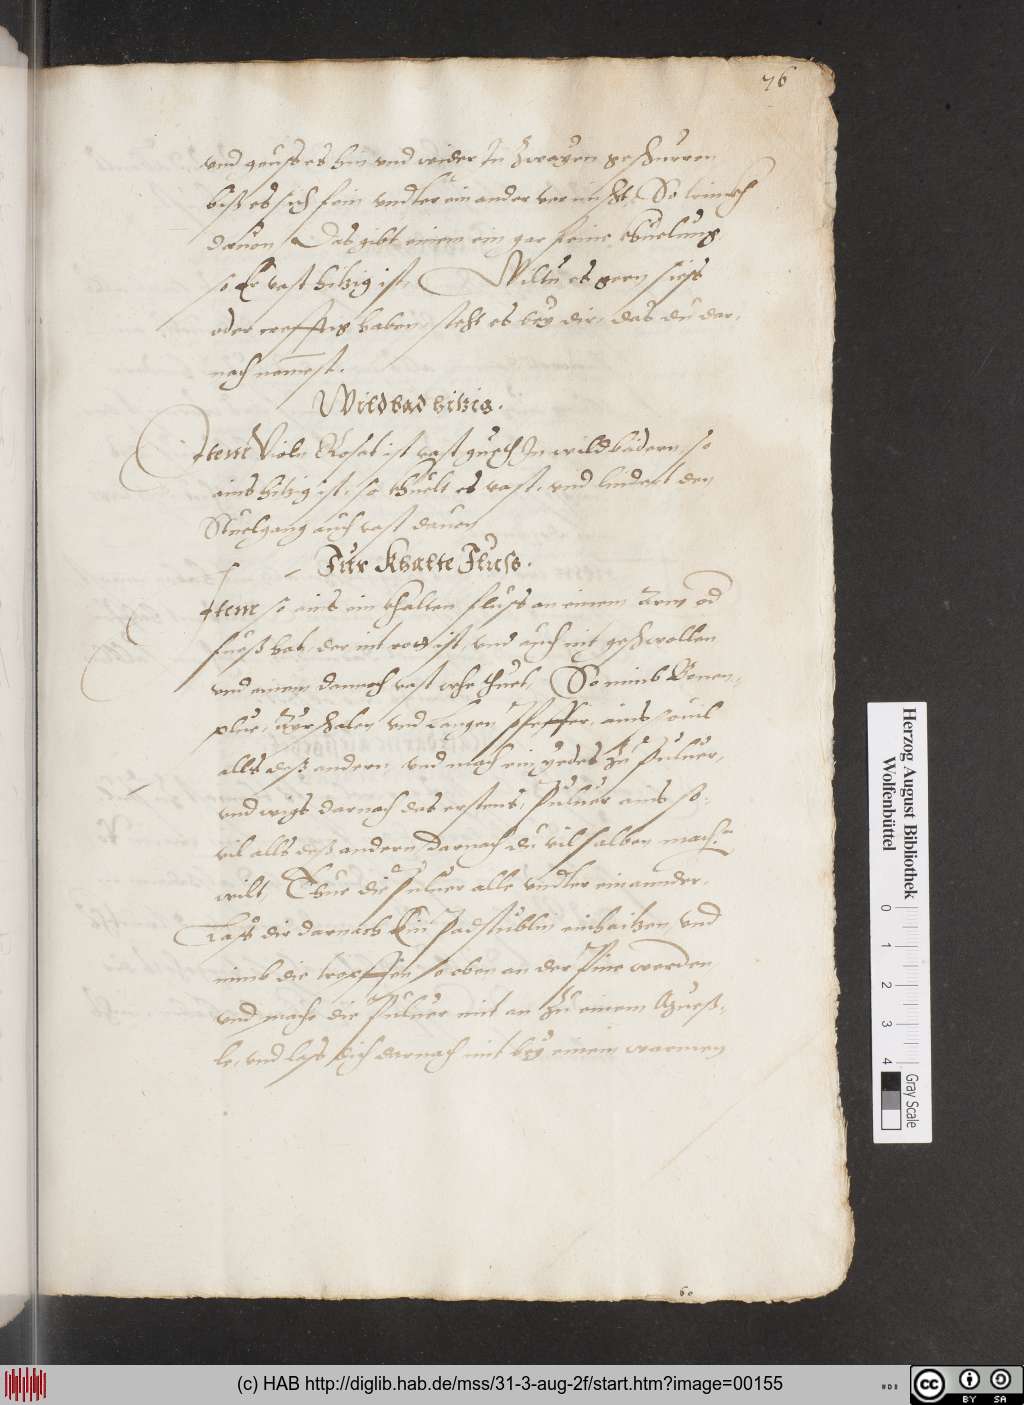 76
vnd geuss es hin vnd wider In zwayen geschirren
biß es sich fein vndter ein ander vermischt, So trinckh
dauon Das gibt einem ein gar feine khuelung,
so Er vast hitzig ist, Wiltu es gern siess
oder reffig haben, steht es bey dir, das du dar,
nach nemest.
Wildbad hitzig.
Item Violn Rosat ist vast gueth In wildbädern so
ains hitzig ist, so khuelt es vast, vnd lindert den
Stuelgang auch vast dauon
Für khalte Flüss.
Item so ains ein khalten fluss an einem Arm od
fueß hat, der nit rott ist, vnd auch nit geschwollen
vnd einem dannoch vast wehe thuet, So nimb Bonen,
plue, Ayrschalen vnd Langen Pfeffer, ains souil
alls deß andern, vnd mach ein yedes zu Puluer,
vnd wigs darnach des erstens, Puluer ains so,
vil alls deß andern, darnach du vil salben machen
wilt, Thue die Puluer alle vndter einannder,
Lass dir darnach Ein Padstüblin einhaitzen, vnd
nimb die tropffen so oben an der Püne werden
vnd mache die Puluer mit an zu einem
le, vnd lass dich darnach mit bey einem warmen
60
Herzog August Bibliothek
Wolfenbüttel
0 1 2 3 4
Gray Scale
(c) HAB http://diglib.hab.de/mss/31-3-aug-2f/start.htm?image=00155
cc BY SA